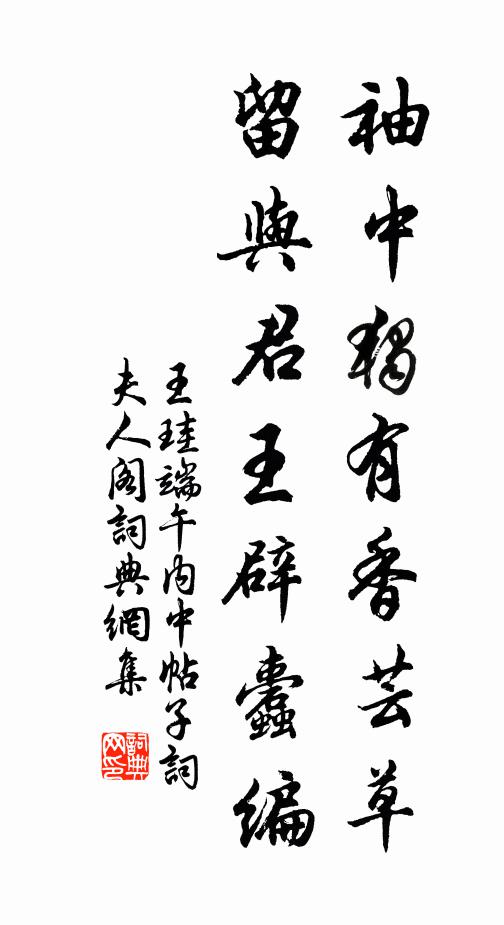 袖中獨有香芸草
留與君王辟蠹編
王珪端午內中帖子詞
夫人閣詞典網集
詞典
网印